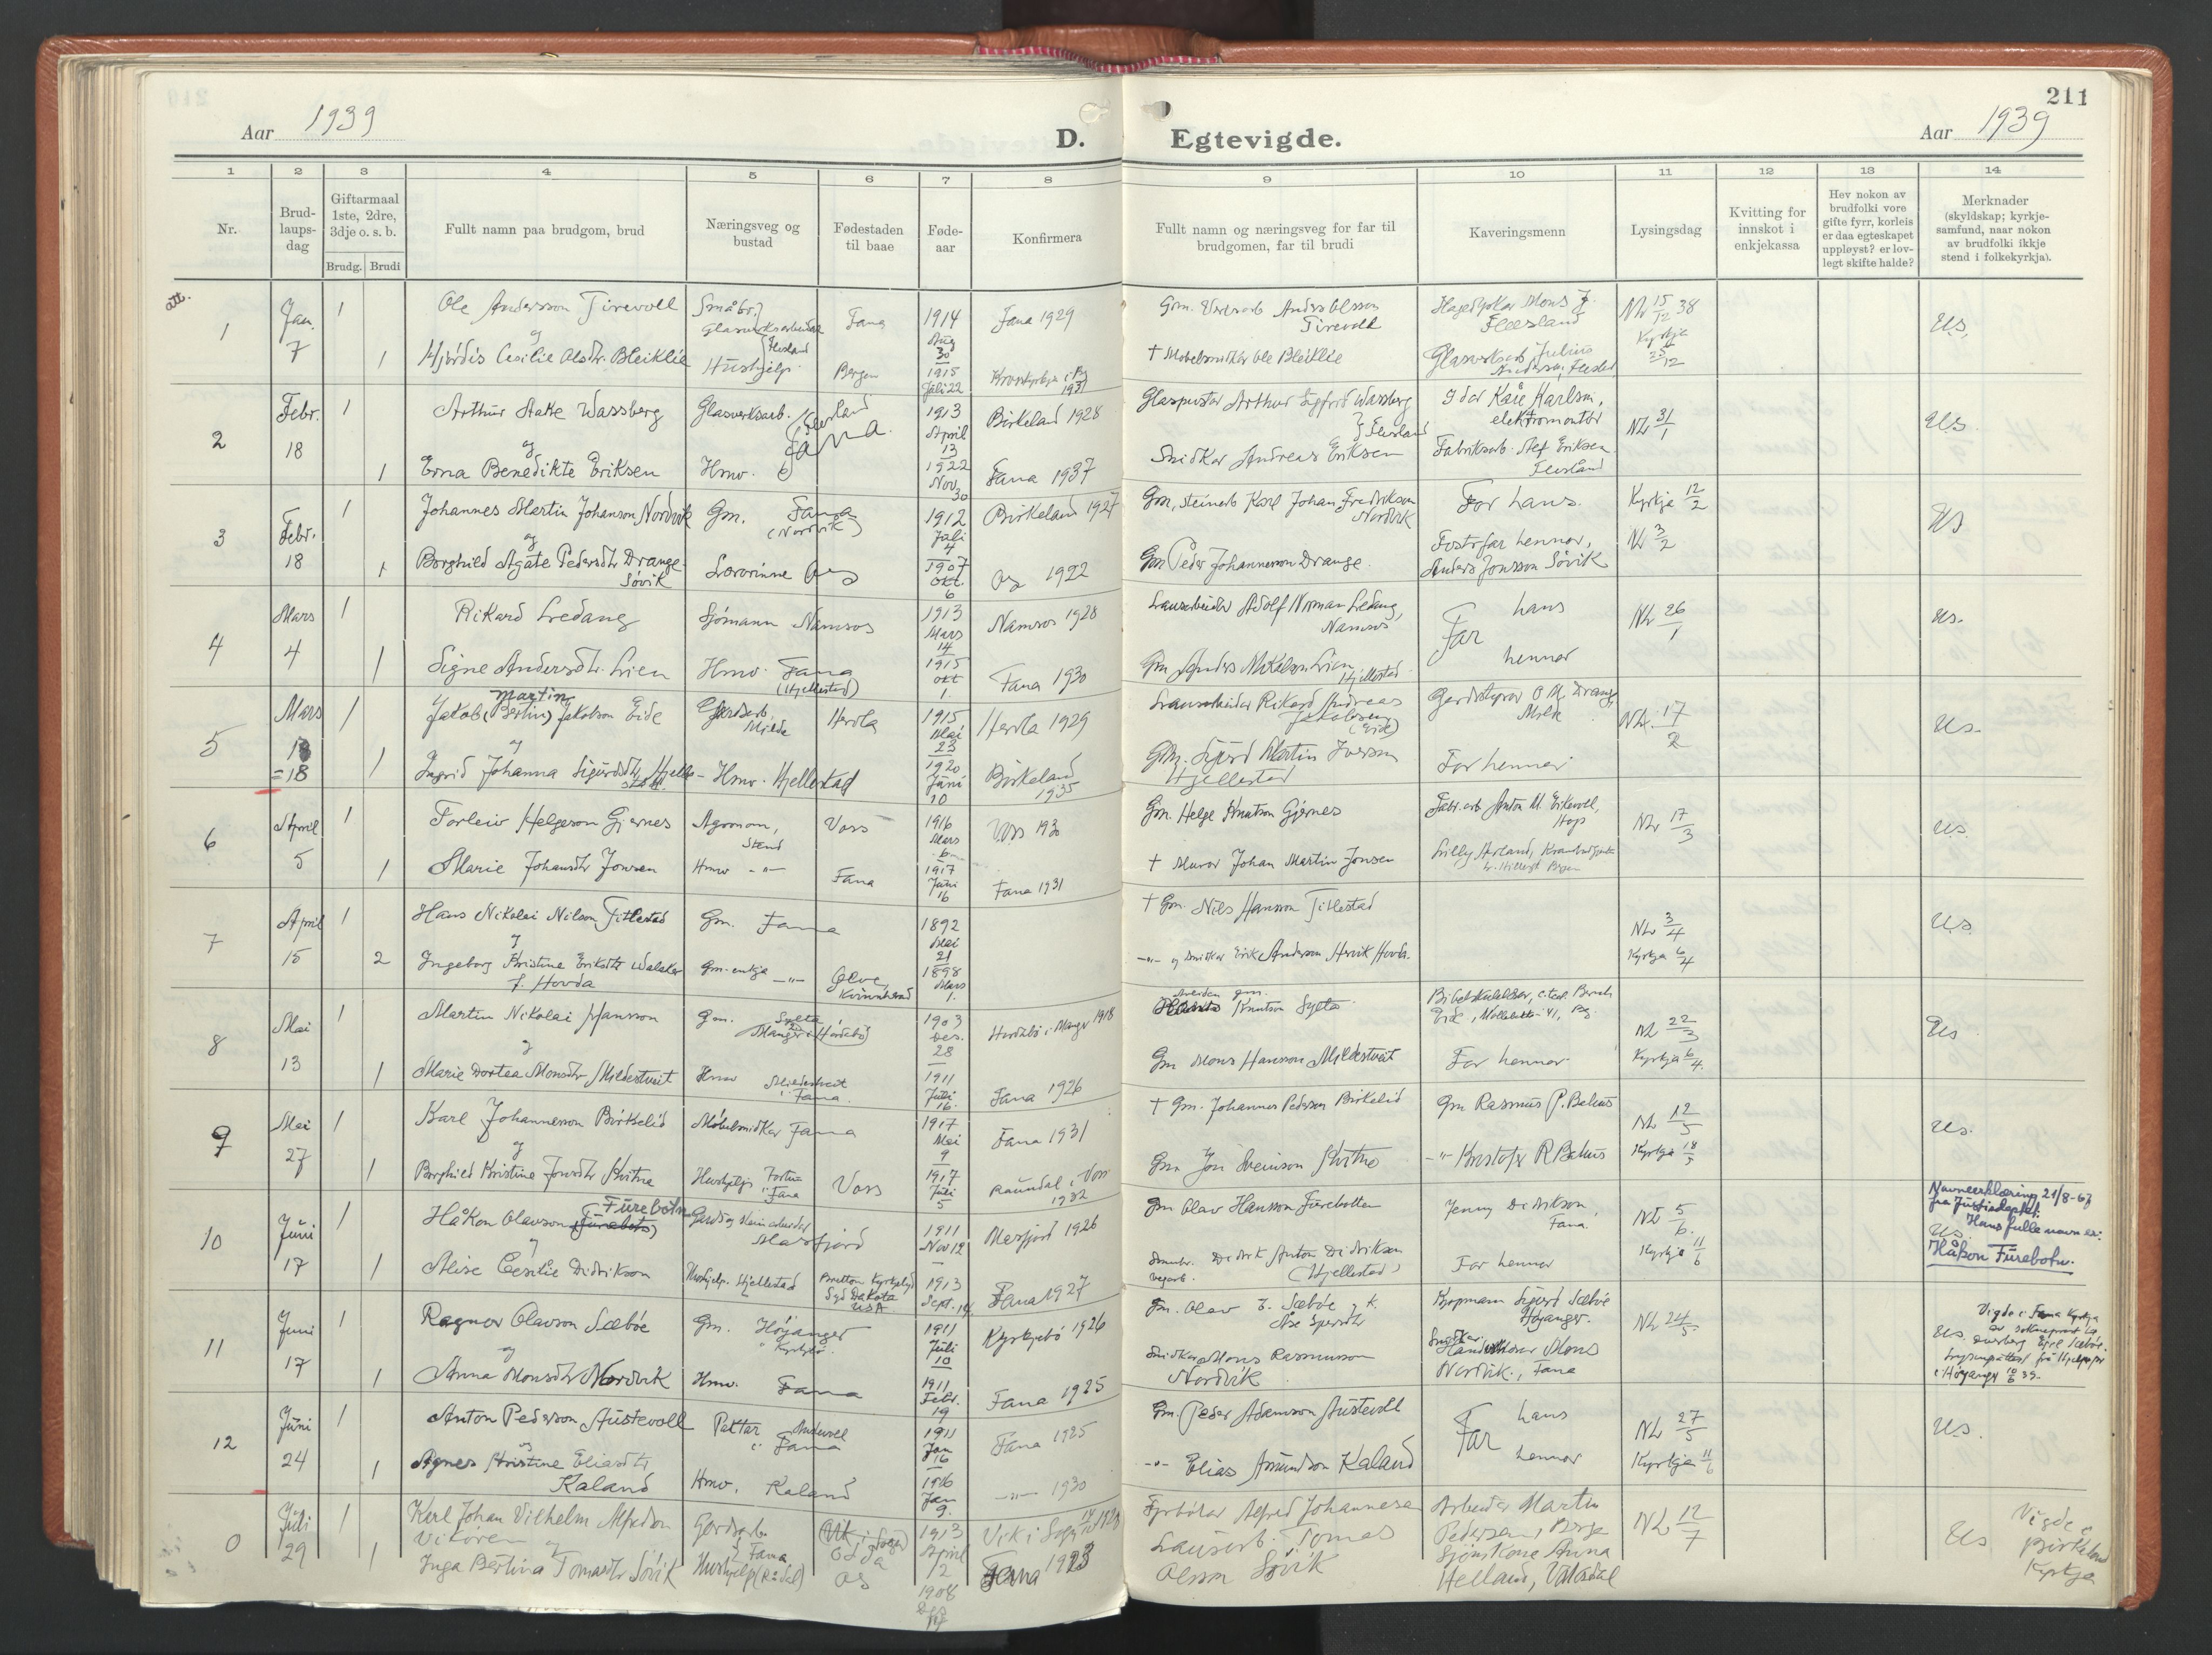 211
Aar 1939
D. Egtevigde.
Aar 1939
1 2 3 4 5 6 7 8 9 10 11 12 13 14
Nr.
Brud-
laups-
dag
Giftarmaal
1ste, 2dre,
3dje o. s. b.
Brudg. Brudi
Fullt namn paa brudgom, brud
Næringsveg og
bustad
Fødestaden
til baae
Føde-
aar
Konfirmera
Fullt namn og næringsveg for far til
brudgomen, far til brudi
Kaveringsmenn
Lysingsdag
Kvitting for
innskot i
enkjekassa
Hev nokon av
brudfolki vore
gifte fyrr, korleis
er daa egteskapet
uppløyst? er lov-
legt skifte halde?
Merknader
(skyldskap; kyrkje-
samfund, naar nokon
av brudfolki ikkje
stend i folkekyrkja).
att.
1 Jan. 7
1 Ole Andersson Tirevoll Småbr. Glasverksarbeidar Fana 1914 Aug 30 Fana 1929
Tirevoll
Flesland
Kyrkje
U.s.
og
1 Hjördis Cecilie Olsdtr. Bleiklie Hushjelp Bergen 1915 Juli 22 Krosskyrkja i Bg 1931
† Møbelsnidkar Ole Bleiklie
Glasverksarb. Julius
2 Febr. 18
1 Arthur Aake Wassberg Glasverksarb. Flesland 1913 April 13 Birkeland 1928
Arthur Sigfrid Wassberg
Flesland
Karlsen,
elektromontør
NL 3/1
U.s.
og
1 Erna Benedikte Eriksen Hmv. Fana 1922 Nov. 30 Fana 1937
Snidkar Andreas Eriksen
Fabriksarb. Alf Eriksen
Flesland
3 Febr. 18
1 Johannes Martin Johanson Nordvik Gm. Fana (Nordvik) 1912 Juli 4 Birkeland 1927
Gm, steinarb Karl Johan Fredrikson
Nordvik
Far hans.
Kyrkja 12/2
Us
og
1 Borghild Agate Pedersdtr Drange
Søvik
Lærarinne Os 1907 Okt. 6 Os 1922
Gm Peder Johannesson Drange.
Fostrfar hennar,
Anders Jonsson Søvik
NL 3/2
4 Mars 4
1 Rikard Ledang Sjömann Namsos 1913 Mars 14 Namsos 1928
Adolf Norman Ledang,
Namsos
Far hans
NL 26/1
us.
1 Signe Andersdtr. Lien Hmv. Fana (Hjellestad) 1915 okt 1. Fana 1930
Gm Anders Mikalson Lien
Hjellestad
hennar
5 Mars 18
= 18
1 Martin
Jakob (Bertin) Jakobson Eide Gardsarb. Milde Herdla 1915 Mai 23 Herdla 1929
Rikard Andreas
Jakobsen
(Eide)
Gardstyrar O. M. Drange,
Milde
NL. 17/2
Us.
og
1 Ingrid Johanna Sigurdsdtr Hjelle-
stad
Hmv. Hjellestad 1920 Juni 10 Birkeland 1935
Gm. Sigurd Martin Iversen
Hjellestad
Far hennar
6 April 5
1 Torleiv Helgeson Gjernes Agronom, Stend Voss 1916 Mars 6. Voss 1930
Gm. Helge Knutson Gjernes
Fabr.arb. Anton M. Eikevoll,
Hop
NL 17/3
U.s.
1 Marie Johansdtr Jonsen Hmv -"- Fana 1917 Juni 16 Fana 1931
† Murar Johan Martin Jonsen
7 April 15
1 Hans Nikolai Nilson Titlestad Gm. Fana 1892 Mai 21
† Gm. Nils Hansson Titlestad
NL 3/4
U.s.
og
2 Ingeborg Kristine Eriksdtr Walaker
f. Hovda
Gm. enkja -"- Ølve, Kvinnherad 1898 Mars 1.
-"- og snidkar Erik Anderson Hervik Hovda.
Kyrkja 6/4
8 Mai 13
1 Martin Nikolai Hansson Gm. Sylta
Manger i (Hordabø) 1903 Des. 28 Hordabø i Manger 1918
Knutson Sylta
NL 22/3
Us
og
1 Marie Dortea Monsdtr Mildestveit Hmv Mildestveit i Fana. 1911 Juli 16. Fana 1926
Gm Mons Hansson Mildestveit
Far hennar
Kyrkja 6/4.
9 Mai 27
1 Karl Johannesson Birkelid Møbelsnidkar Fana 1917 Mai 9 Fana 1931
† Gm. Johannes Pederson Birkelid
Gm Rasmus P. Belius
NL 12/5
Us.
og
1 Borghild Kristine Jonsdtr Kvitne Hushjelp Fortun i Fana Voss 1917 Juli 5 Raundal i Voss 1932
Gm Jon Sveinson Kvitno
-"- Kristofer R Belius
Kyrkja 18/5
10 Juni 17
1 Furebotn
Håkon Olavson (Furebotn) Gards og steinarbeidar
Masfjord 1911 Nov 12 Masfjord 1926
Gm Olav Hansson Furebotten
Jenny Didrikson,
Fana.
NL 5/6.
Navneerklæring 21/8-67
fra Justisdeptet.
Hans fulle navn er:
Us.
Håkon Furebotn.
og
1 Alise Cecilie Didrikson Hushjelp. Hjellestad Britton Kyrkjelyd
Syd Dakota
USA 1913 Sept. 14 Fana 1927
Småbr. Didrik Anton Didriksen
vegarb. (Hjellestad)
Far hennar
Kyrkja 11/6
11 Juni 17
1 Ragner Olavson Sæbøe Gm. Høyanger
Kyrkjebø 1911 Juli 10 Kyrkjebø 1926
Gm. Olav E. Sæbøe
Kjøpmann Sigurd Sæbøe
Høyanger.
NL 24/5
Vigde i Fana Kyrkja
Us.
i Høyanger 10/6 39.
og
1 Anna Monsdtr Nordvik Hmv. Fana 1911 Febr. 19 Fana 1925
Snidkar Mons Rasmusson
Nordvik
Mons
Nordvik., Fana
12 Juni 24
1 Anton Pederson Austevoll Paktar
i Fana 1911 Jan 16 Fana 1925
Gm. Peder Adamson Austevoll
Far hans
NL 27/5
Us.
og
1 Agnes Kristine Eliasdtr
Kaland
Hmv. Kaland 1916 Jan 9. -"- 1930
-"- Elias Amundson Kaland
hennar
Kyrkja 11/6
0 Juli 29
1 Karl Johan Vilhelm Alfredson
Vikören Gardsarb. (Vik i Sogn)
Odda 1913 April 12 Vik i Sogn 1928
Fyrbøtar Alfred Johannesen
Arbeidar Martin
Pedersen,
NL 12/7
Us
Vigde i
Birkeland
Kyrkja
og
1 Inga Bertina Tomasdtr Søvik Hushjelp Fana (Rådal) Os 1908 Fana 1923
Lausarb. Tomas
Olsson Søvik
Anna
Helland,